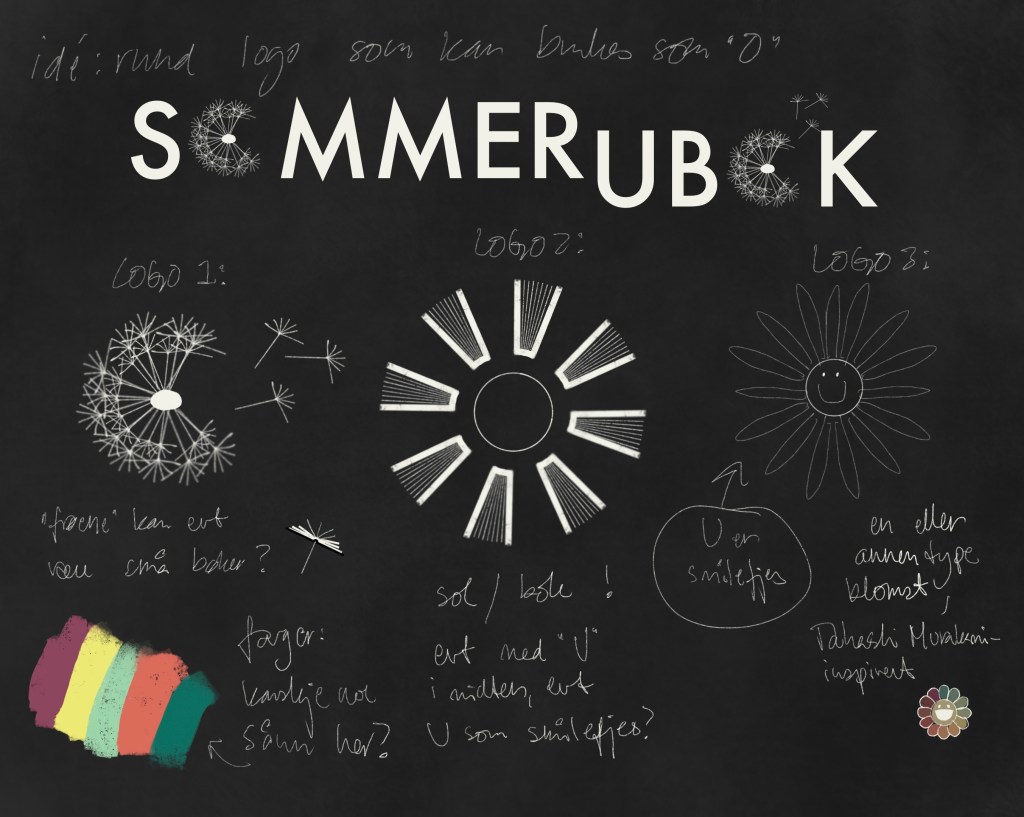 idé: rund logo som kan brukes som "O"
SOMMERUBOK
LOGO 1:
LOGO 2:
LOGO 3:
"frøene" kan evt
være små bøker?
sol / bok !
evt med "U"
i midten, evt
U som smilefjes?
U er
smilefjes
en eller
annen type
blomst,
Takashi Murakami-
inspirert
farger:
kanskje noe
sånn her?